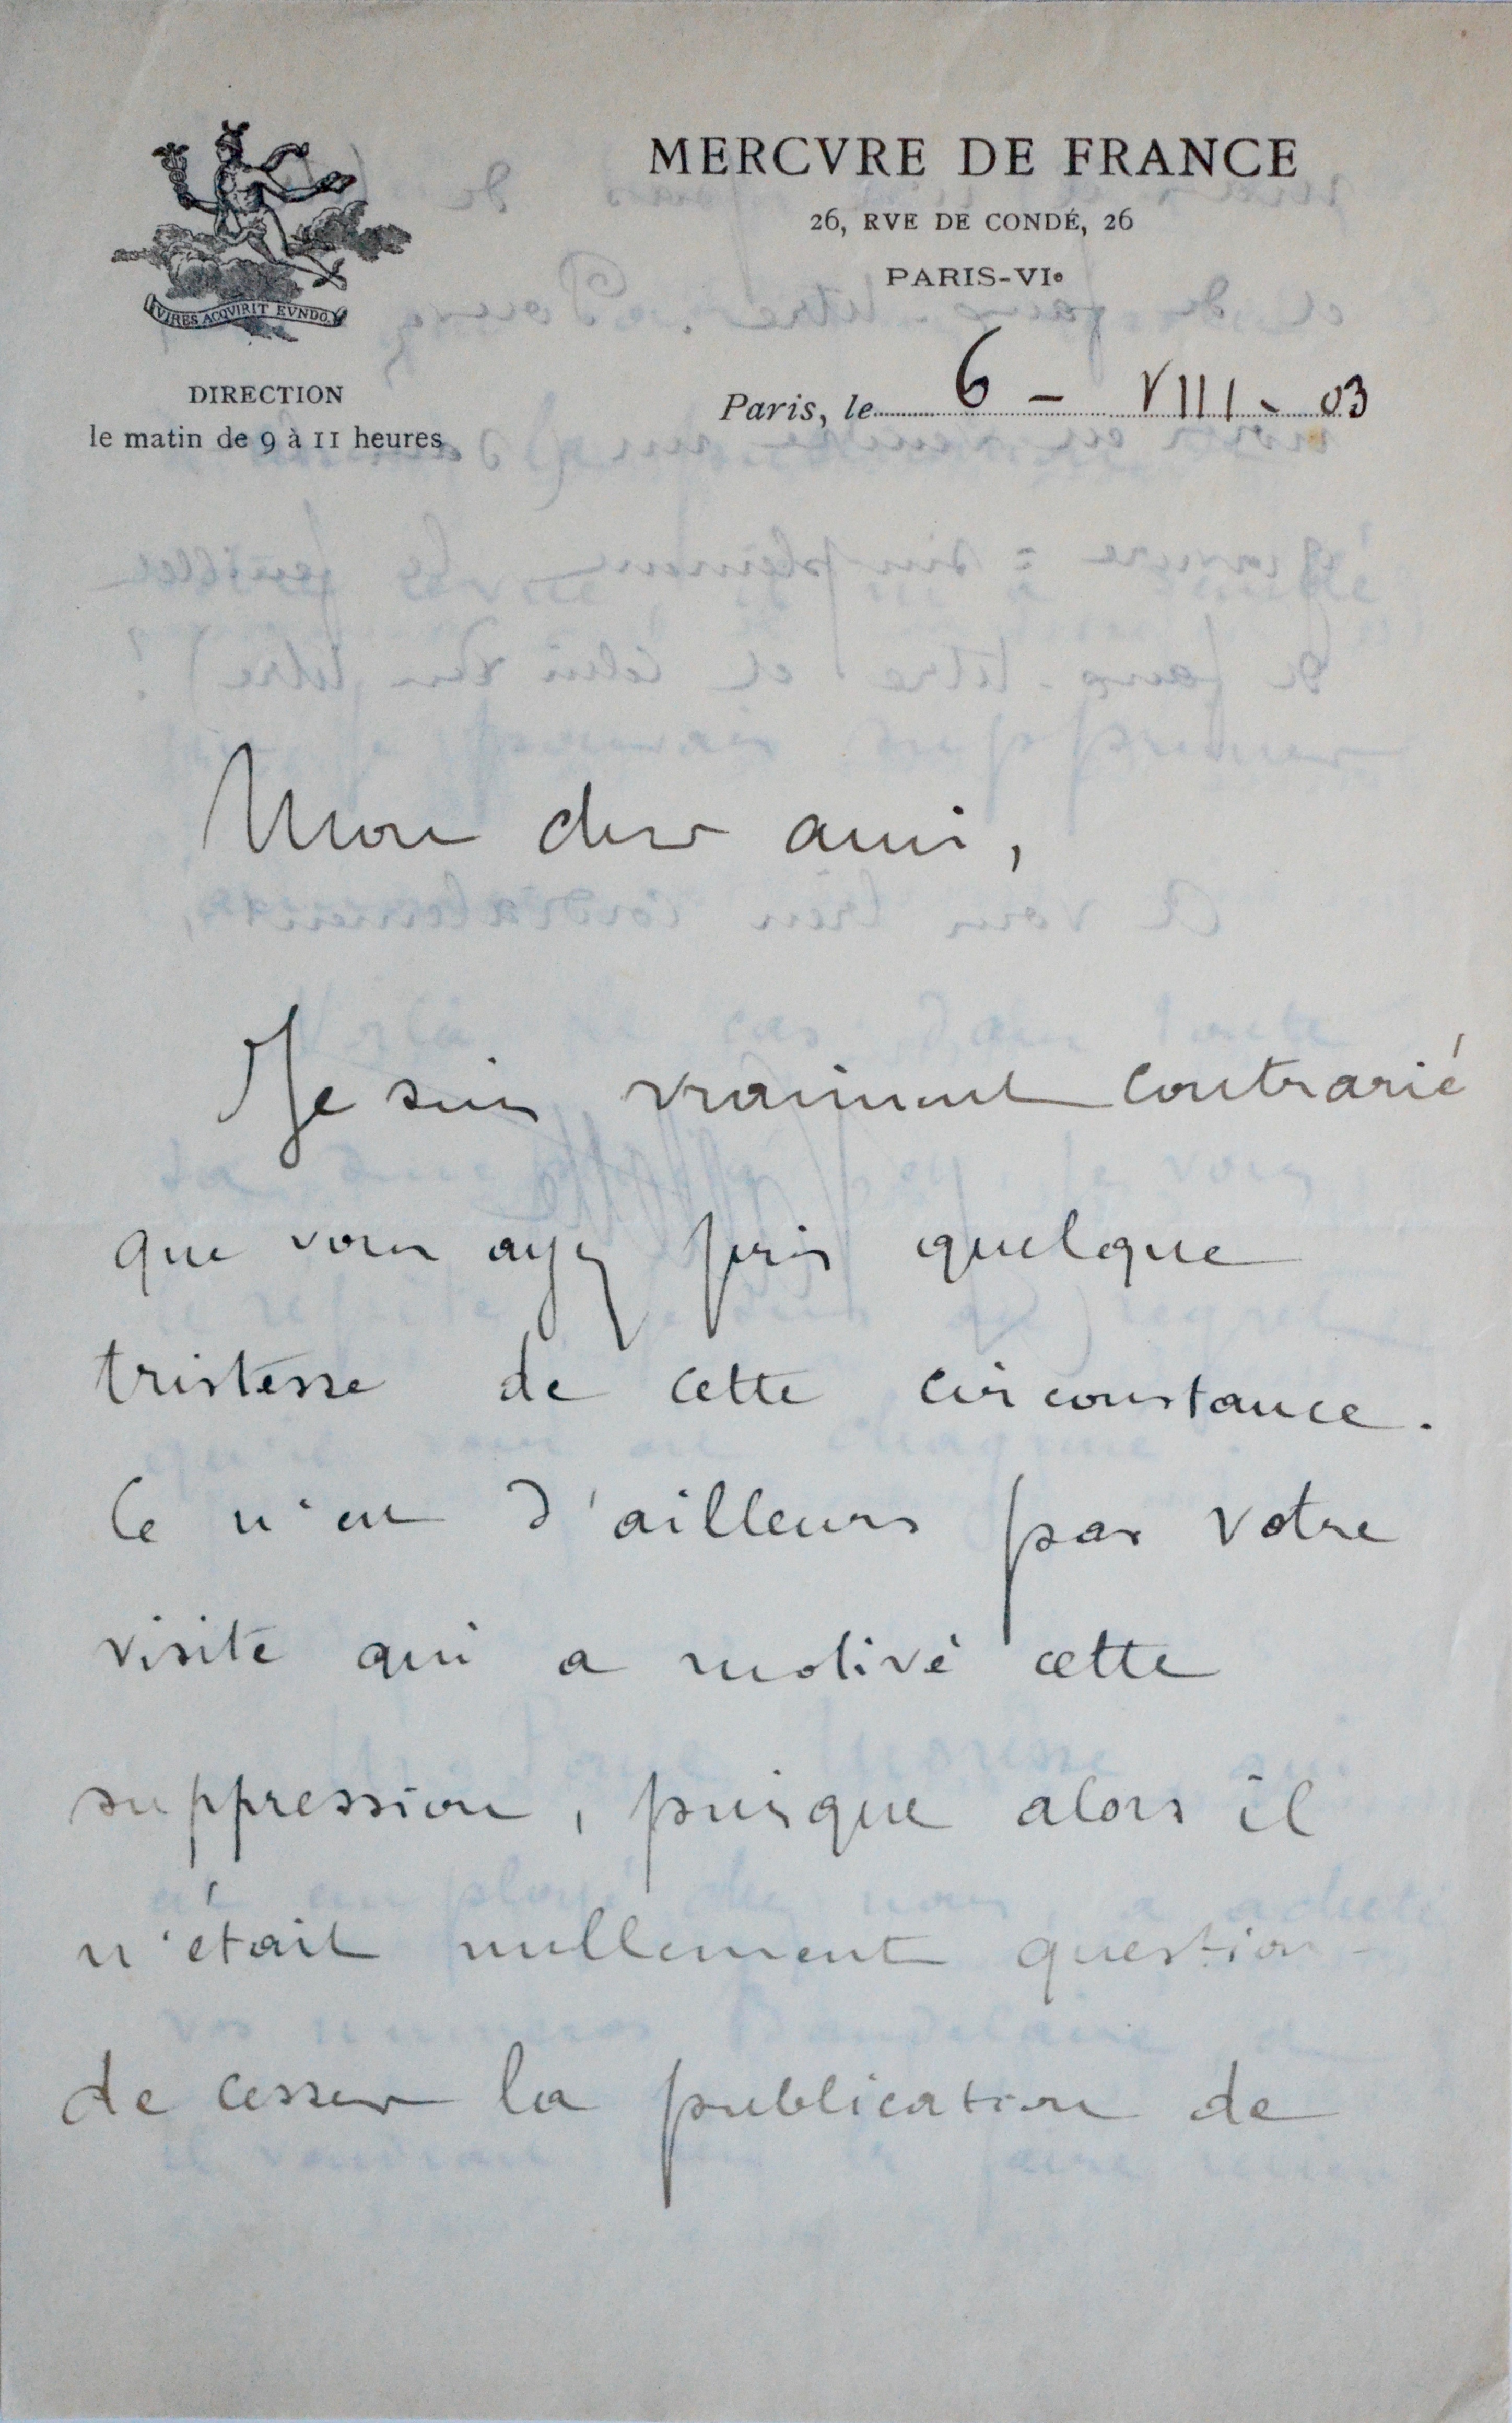 MERCVRE DE FRANCE
26, RVE DE CONDÉ, 26
PARIS-VIe
VIRES ACQVIRIT EVNDO
DIRECTION
le matin de 9 à 11 heures
Paris, le 6 - VIII - 03
Mon cher ami,
Je suis vraiment contrarié
que vous ayez pris quelque
tristesse de cette circonstance.
Ce n'est d'ailleurs pas votre
visite qui a motivé cette
suppression, puisque alors il
n'était nullement question
de cesser la publication de